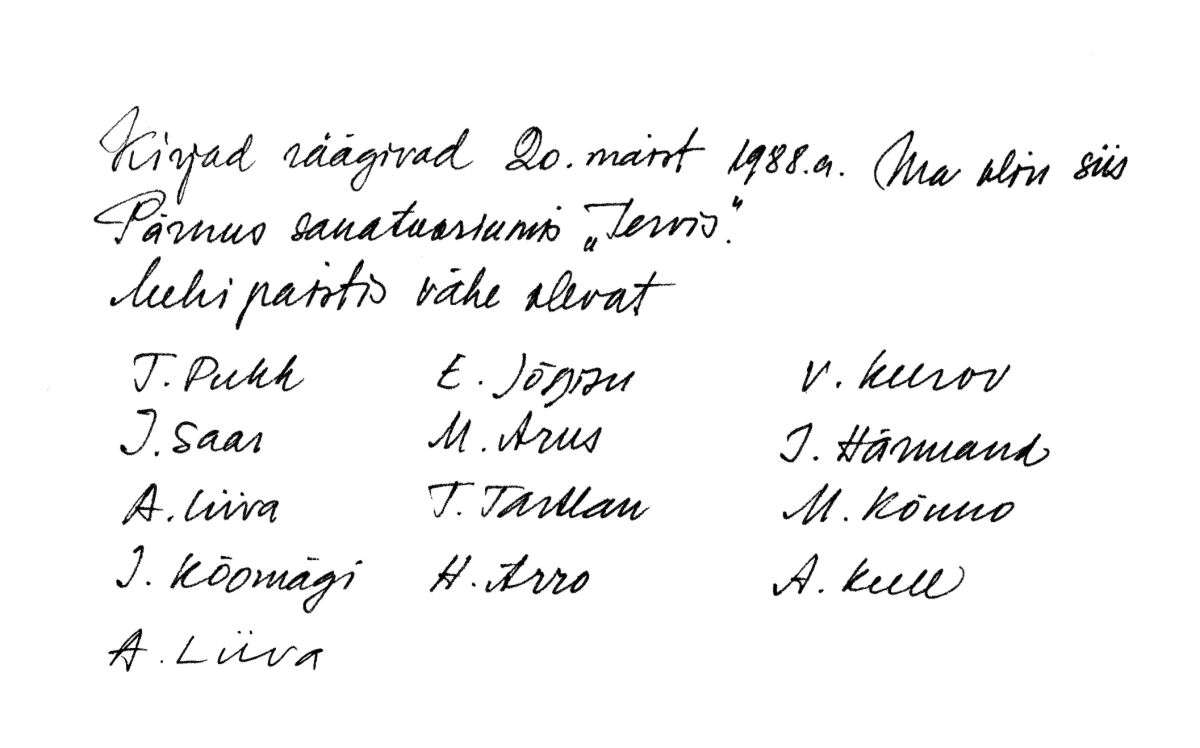 Kirjad räägivad 20. maist 1988.a. Ma olin siis
Pärnus sanatooriumis „Tervis".
Mehi paistis vähe olevat
T. Pukk E. Jõgisu V. Keerov
J. Saar M. Arus J. Härmand
A. Liiva T. Tartlan M. Kõnno
J. Kõomägi H. Arro A. Kull
A. Liiva